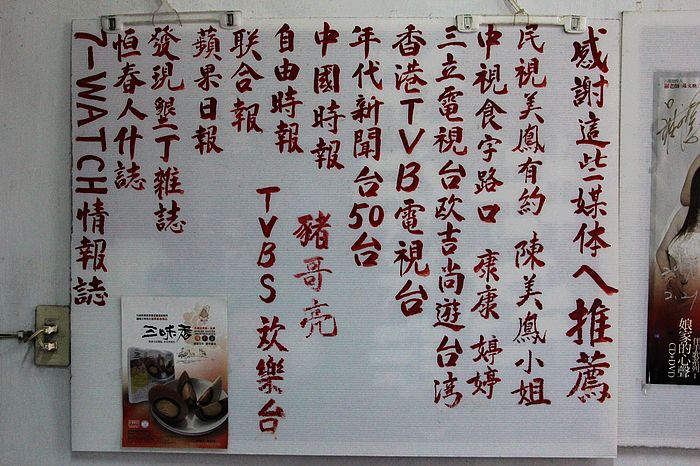 感謝這些媒体へ推薦
民視美鳳有約 陳美鳳小姐
中視食字路口 康康 婷婷
三立電視台歐吉尚遊台湾
香港TVB電視台
年代新聞台50台
中國時報 豬哥亮
自由時報 TVBS 欢樂台
联合報
蘋果日報
發現墾丁雜誌
恒春人什誌
7-WATCH情報誌
三味香
娘家的心聲
CD+DVD